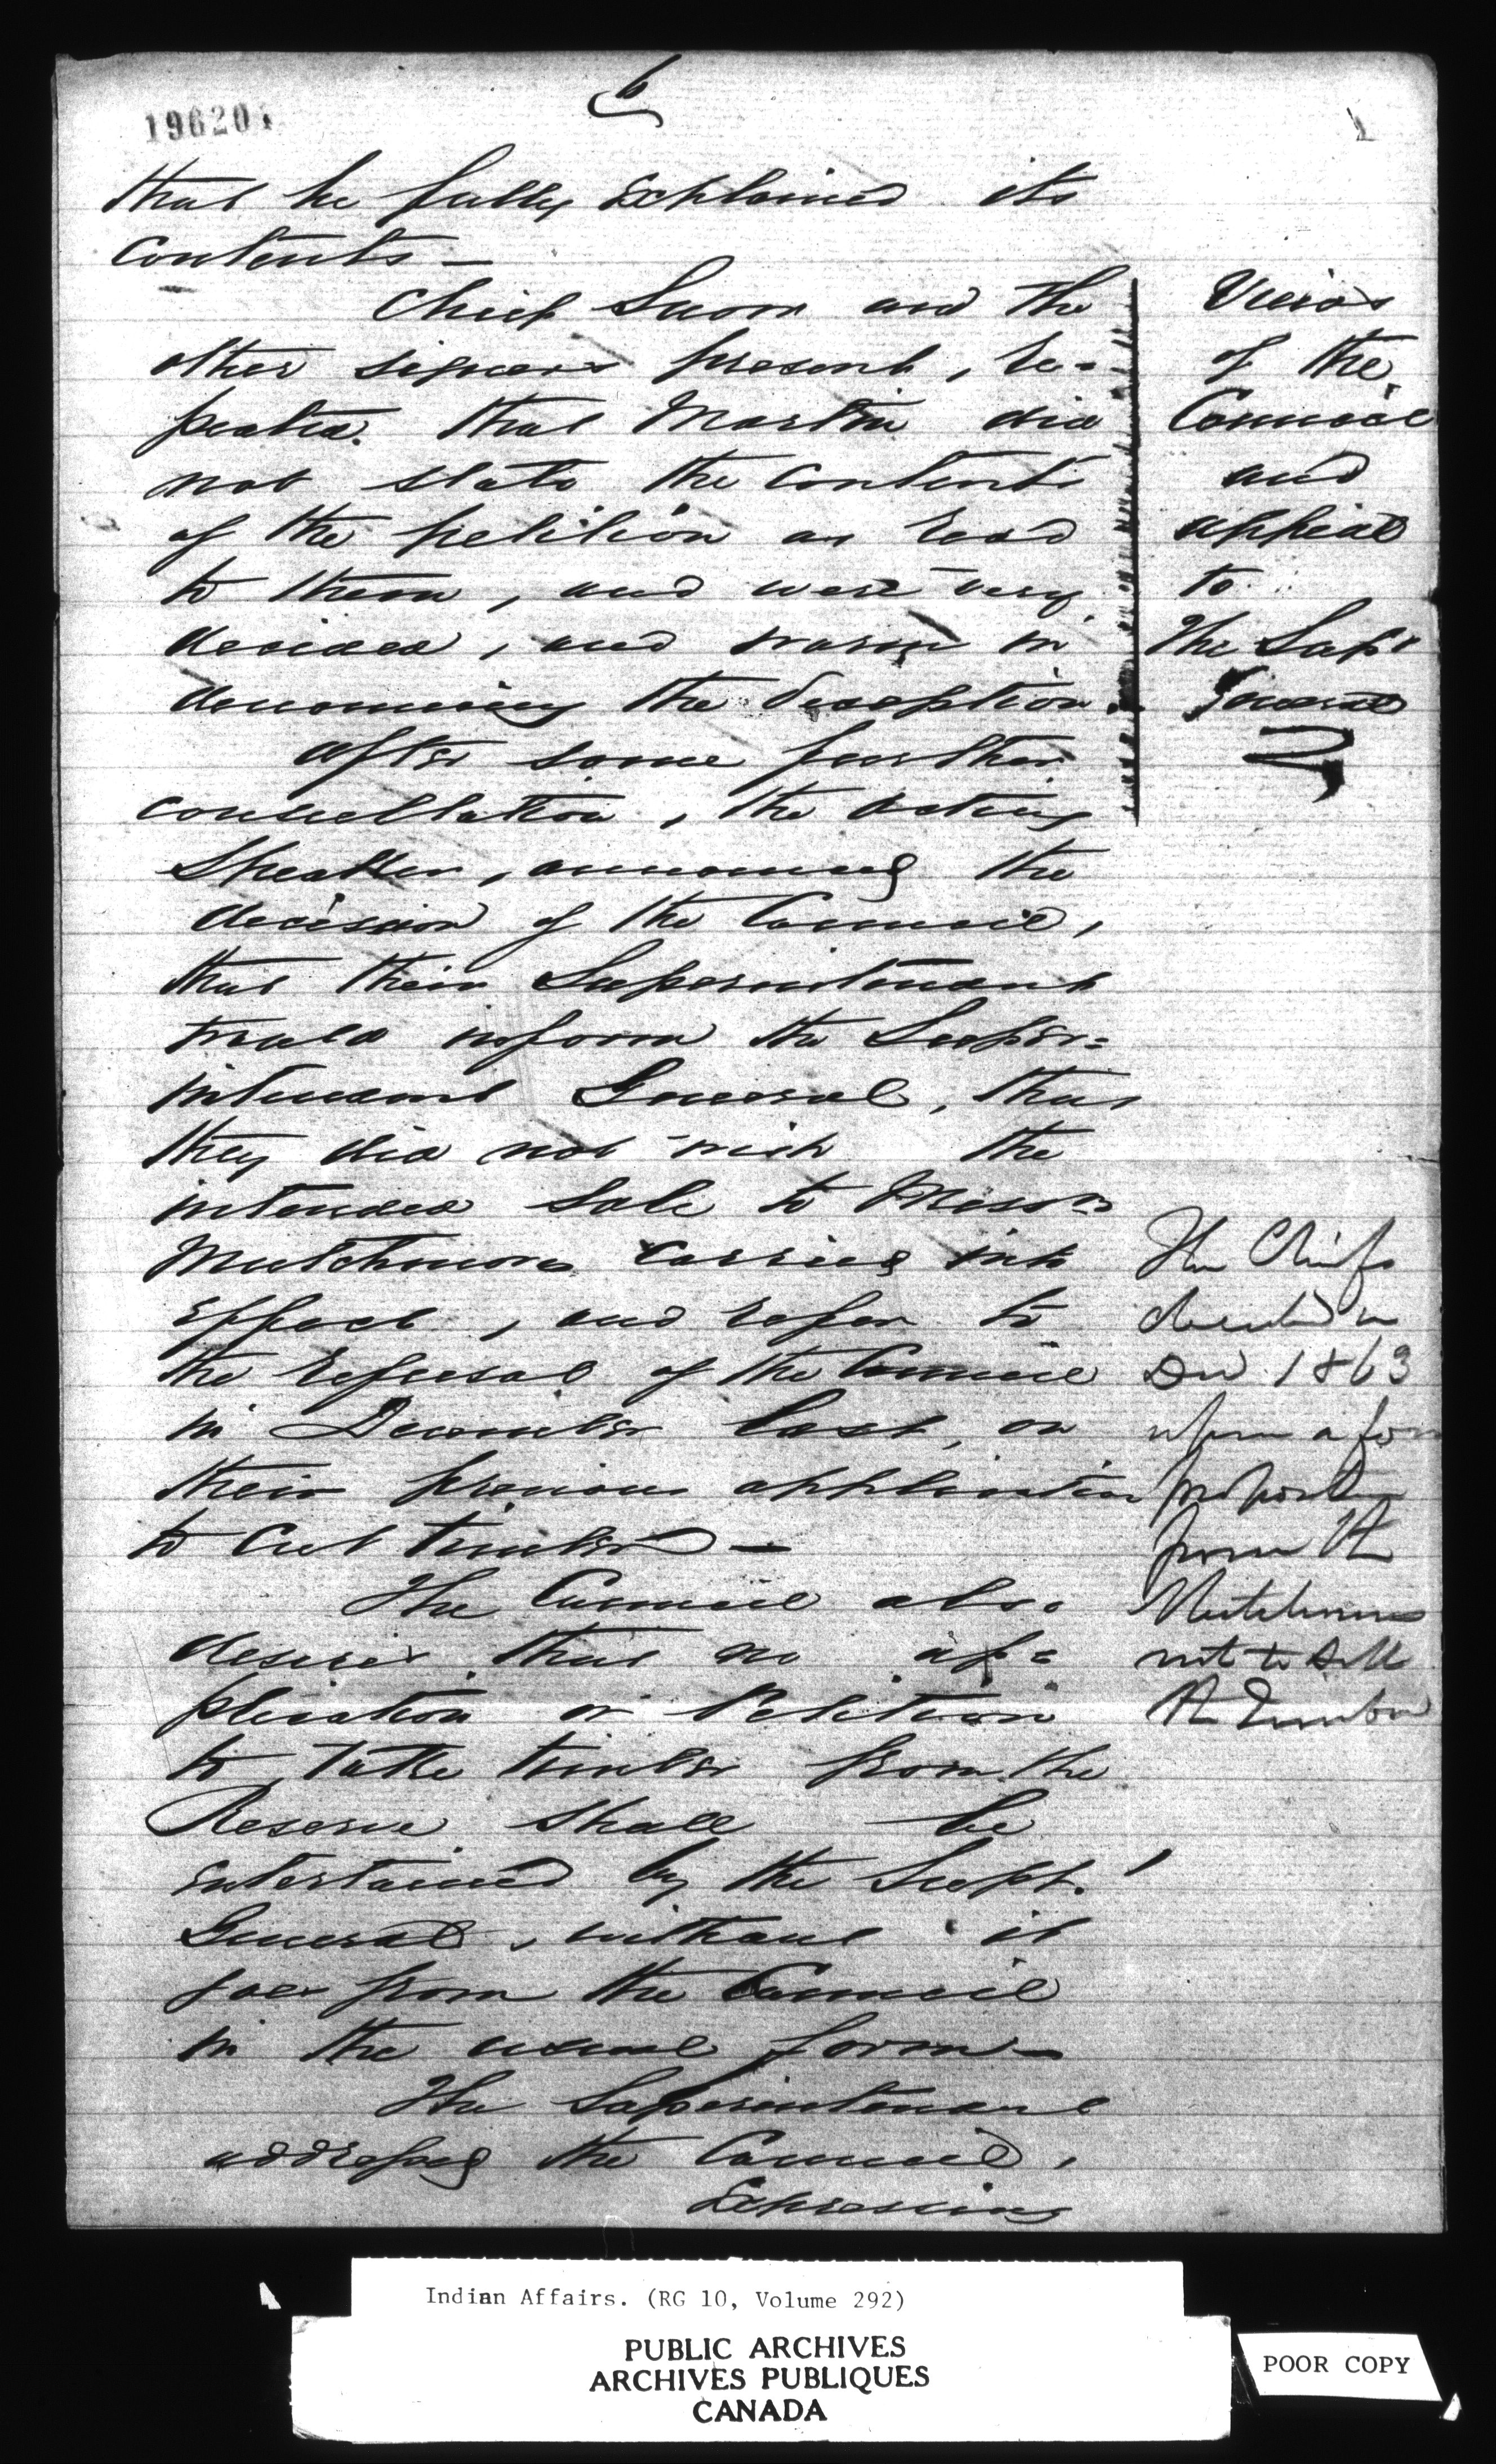 6
196201
that he fully Explained its
Contents —
Chief Snow and the
other signers present, re-
peated that Martin did
not state the Contents
of the petition as read
to them, and were very
decided, and warm in
denouncing the deception.
After some further
consultation, the Acting
Speaker, announced the
decision of the Council,
that their Superintendent
would inform the Super=
intendent General, that
they did not wish the
intended Sale to Messrs
Mutchmors Carried into
Effect, and refer to
the refusal of the Council
in December last, on
their previous application
to Cut timber —
The Council also
desires that no ap=
plication or Petition
to take timber from the
Reserve shall be
entertained by the Supt.
General, without it
goes from the Council
in the usual form —
The Superintendent
addressed the Council,
Expressing
Views
of the
Council
and
appeal
to
the Supt
General
The Chiefs
decided in
Dec 1863
upon a
proposition
from the
Mutchmors
not to sell
the Timber
Indian Affairs. (RG 10, Volume 292)
PUBLIC ARCHIVES
ARCHIVES PUBLIQUES
CANADA
POOR COPY